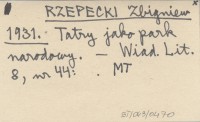 RZEPECKI Zbigniew
1931. Tatry jako park
narodowy. – Wiad. Lit.
8, nr 44: . MT